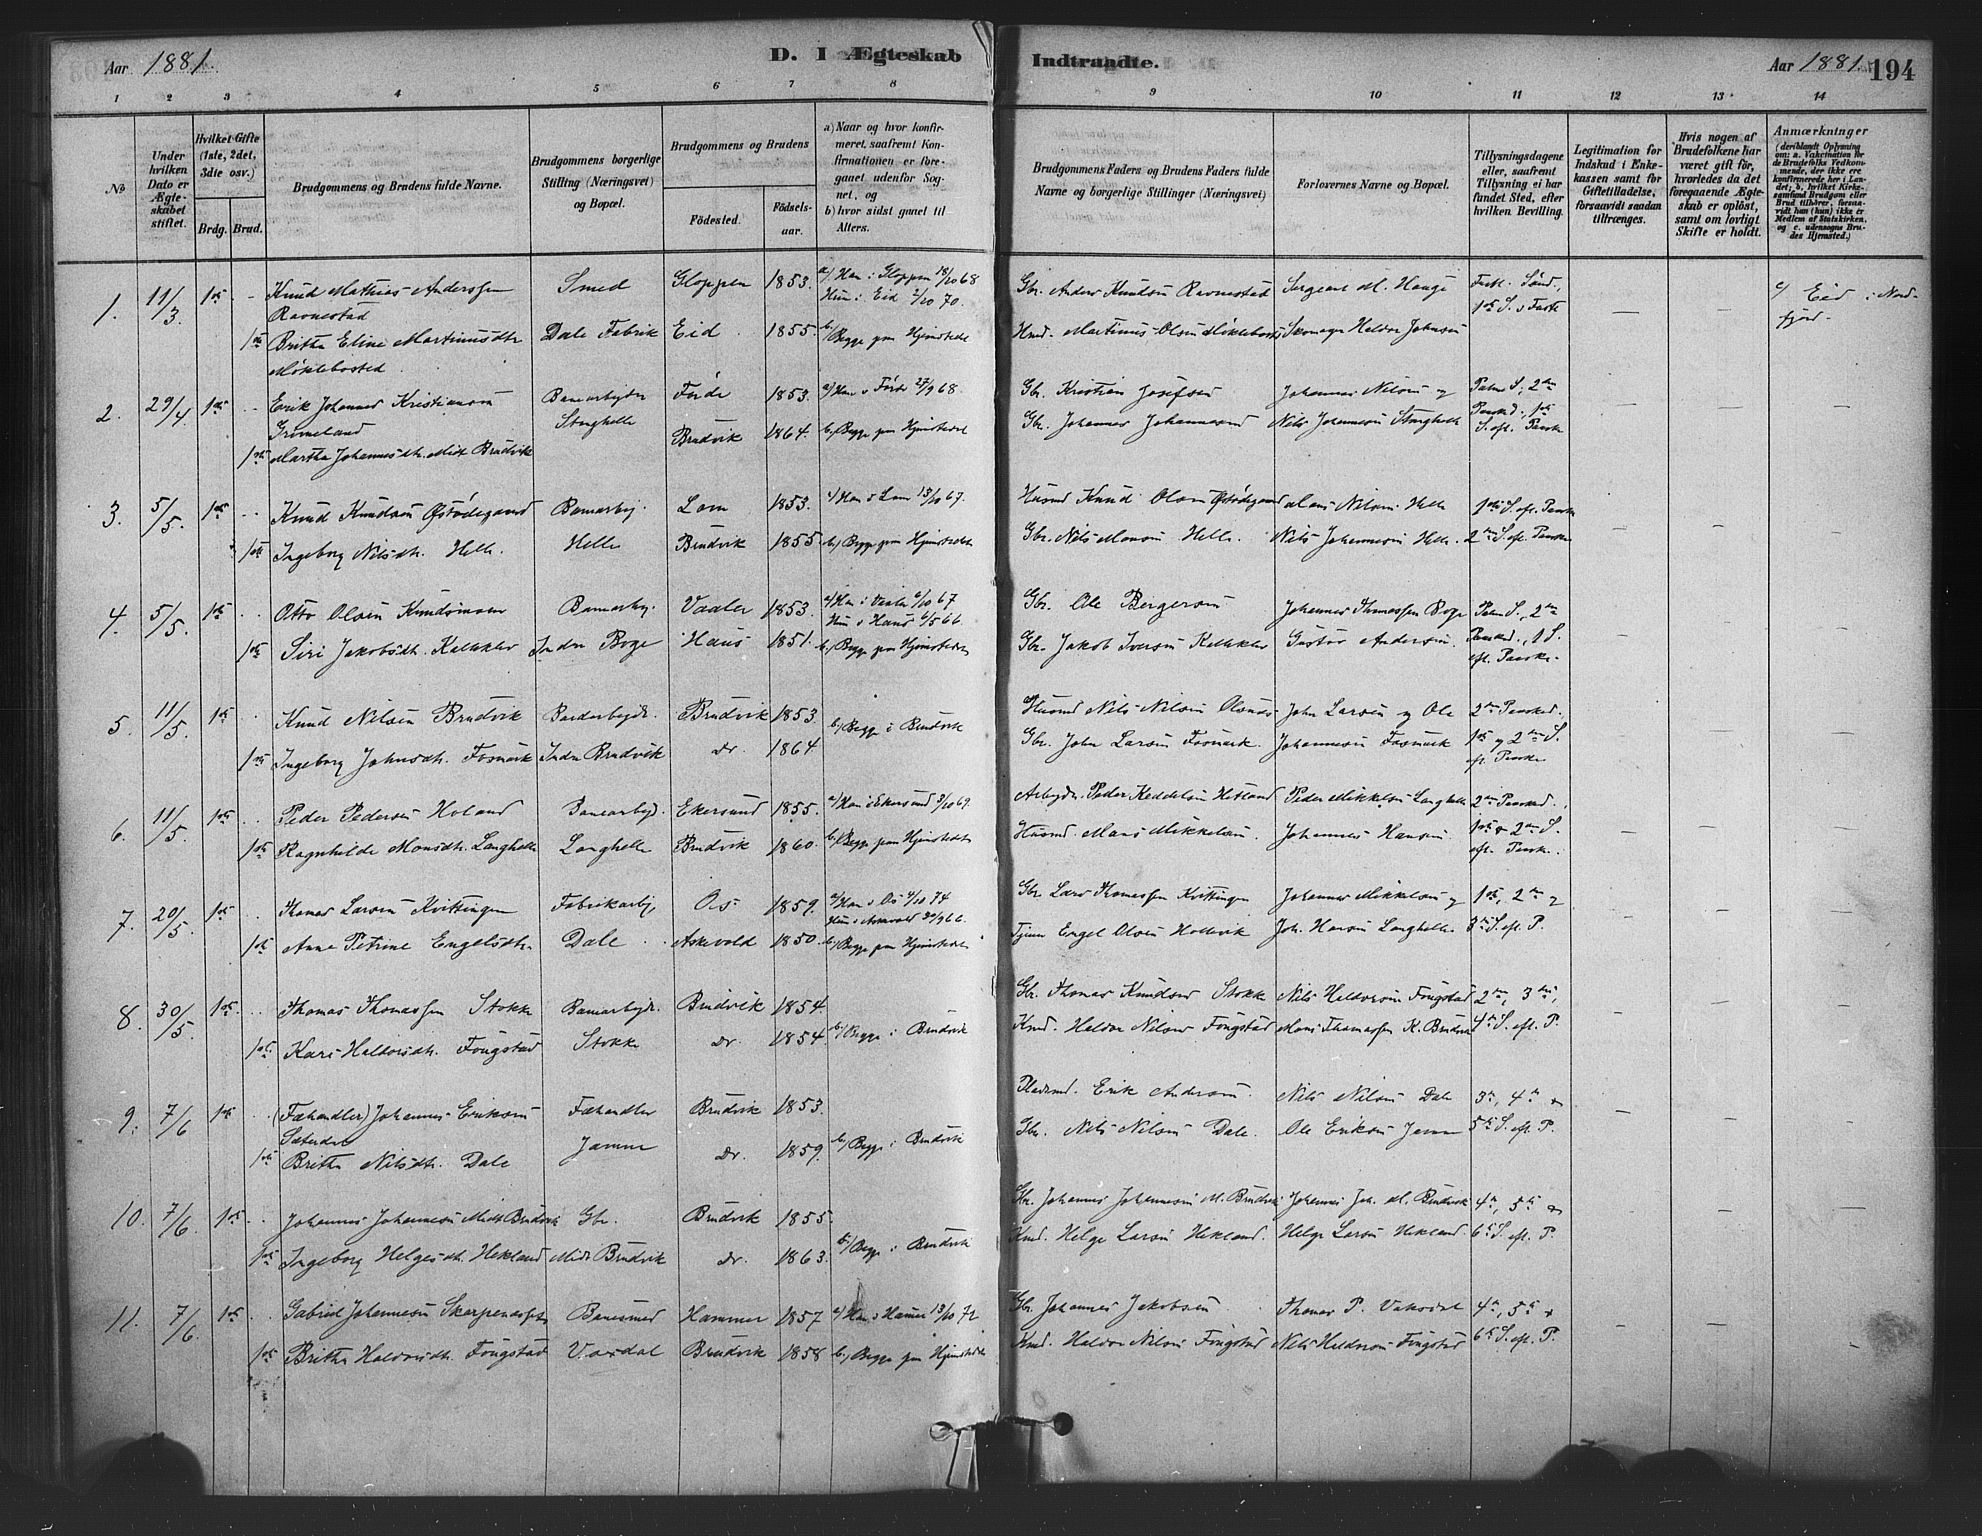 Aar 1881. D. I Ægteskab Indtraadte. Aar 1881. 194
1 2 3 4 5 6 7 8 9 10 11 12 13 14
No
Under hvilken Dato er Ægteskabet stiftet.
Hvilket Gifte (1ste, 2det, 3die osv.)
Brdg. Brud.
Brudgommens og Brudens fulde Navne.
Brudgommens borgerlige Stilling (Næringsvei) og Bopæl.
Brudgommens og Brudens
Fødested. Fødselsaar.
a) Naar og hvor konfirmeret, saafremt Konfirmationen er foregaaet udenfor Sognet, og
b) hvor sidst gaaet til Alters.
Brudgommens Faders og Brudens Faders fulde Navne og borgerlige Stillinger (Næringsvei)
Forlovernes Navne og Bopæl.
Tillysningsdagene eller, saafremt Tillysning ei har fundet Sted, efter hvilken Bevilling.
Legitimation for Indskud i Enkekassen samt for Giftetilladelse, forsaavidt saadan tiltrænges.
Hvis nogen af Brudefolkene har været gift før, hvorledes da det foregaaende Ægteskab er opløst, samt om lovligt Skifte er holdt.
Anmærkninger (deriblandt Oplysning om: a. Vakcination for de Brudefolks Vedkommende, der ikke ere konfirmerede her i Landet; b. hvilket Kirkesamfund Brudgom eller Brud tilhører, forsaavidt han (hun) ikke er Medlem af Statskirken, og c. udensogns Brudes Hjemsted.)
1. 11/3. 1ste .. Knud Mathias Anderssen Smed Gloppen 1853. a) Han i Gloppen 18/10 68 Gbr. Anders Knudsen Ravnestad Sergeant M. Hauge Fastl. Sønd., c) Eid i Nord-
Ravnestad Hun i Eid 2/10 70. 1ste S. i Faste fjord.
1ste Britha Eline Martinusdtr Dale Fabrik Eid 1855. b) Begge paa Hjemstedet Hmd. Martinus Olsen Møklebosted Skomager Heldor Johnsen
Møklebosted.
2. 29/4 1ste .. Erik Johannes Kristiansen Banearbejder Førde 1853. a) Han i Førde 27/9 68. Gbr. Kristian Josefsen Johannes Nilsen og Palme S., 2den
Grimeland Stanghelle Brudvik 1864. b) Begge paa Hjemstedet Gbr. Johannes Johannessen Nils Johannesen Stanghelle Paasked., 1ste
1ste Martha Johannesdtr. Midt Brudvik S. eft. Paaske
3. 5/5. 1ste .. Knud Knudsen Østødegaard Banearbej. Lom 1853. a) Han i Lom 13/10 67. Husmd Knud Olsen Østødegaard Mons Nilsen Helle 1ste S. eft. Paaske
1ste Ingeborg Nilsdtr. Helle Helle Brudvik 1855. b) Begge paa Hjemstedet Gbr. Nils Monsen Helle. Nils Johannesen Helle. 2den S. eft. Paaske
4. 5/5. 1ste .. Otto Olsen Knudsmoen Banearbej. Vaaler 1853. a) Han i Vaaler 6/10 67 Gbr. Ole Bergersen Johannes Thomassen Boge Palme S., 2den
Hun i Haus 6/5 66.
1ste Siri Jakobsdtr. Kallekleiv Indre Boge Haus 1851. b) Begge paa Hjemstedet Gbr. Jakob Iversen Kallekleiv Gustav Andersen. Paasked., 1 S.
eft. Paaske.
5. 11/5. 1ste .. Knud Nilsen Brudvik Banearbejdr. Brudvik 1853. b) Begge i Brudvik Husmd Nils Nilsen Olsnes John Larsen og Ole 2den Paasked.
1ste Ingeborg Johnsdtr. Fosmark Indre Brudvik do. 1864 Gbr. John Larsen Fosmark. Johannesen Fosmark 1ste og 2den S.
eft. Paaske.
6. 11/5. 1ste .. Peder Pedersen Hovland Banearbejd. Ekersund 1855. a) Han i Ekersund 3/10 69. Arbejdr. Peder Keddelsen Hetland Peder Mikkelsen Langhelle 2den Paasked.
1ste Ragnhilde Monsdtr. Langhelle Langhelle Brudvik 1860. b) Begge paa Hjemstedet Husmd. Mons Mikkelsen. Johannes Hansen. 1ste & 2den S.
eft. Paaske.
7. 20/5. 1ste .. Thomas Larsen Kvittingen Fabrikarbj. Os 1859. a) Han i Os 4/10 74 Gbr Lars Thomassen Kvittingen Johannes Mikkelsen og 1ste, 2den og
Hun i Askvold 30/9 66.
1ste Anne Petrine Engelsdtr. Dale Askvold 1850. b) Begge paa Hjemstedet Engel Olsen Hollevik Joh. Hansen Langhelle. 3die S. eft. P.
8. 30/5. 1ste .. Thomas Thomassen Stokke Banearbejdr. Brudvik 1854. b) Begge i Brudvik Gbr. Thomas Knudsen Stokke Nils Heldorsen Fougstad 2den, 3die,
1ste Kari Haldorsdtr. Fougstad Stokke do. 1854. Kmd. Haldor Nilsen Fougstad Mons Thomassen K. Brudvik 4de S. eft. P.
9. 7/6 1ste .. (Fæhandler) Johannes Eriksen Fæhandler Brudvik 1853. b) Begge i Brudvik Pladsmd. Erik Andersen Nils Nilsen Dale 3die, 4de &
1ste Britha Nilsdtr. Dale Jamne do. 1859. Gbr. Nils Nilsen Dale. Ole Eriksen Jamne 5te S. eft. P.
10. 7/6. 1ste .. Johannes Johannesen Midt Brudvik Gbr. Brudvik 1855. b) Begge i Brudvik Gbr. Johannes Johannesen M. Brudvik Johannes Joh. M. Brudvik 4de, 5te &
1ste Ingeborg Helgesdtr. Hekland Midt Brudvik do. 1863. Kmd. Helge Larsen Hekland. Helge Larsen Hekland. 6te S. eft. P.
11. 7/6. 1ste .. Gabriel Johannesen Skarpenæs Banesmed Hammer 1857 a) Han i Hamer 13/10 72 Gbr. Johannes Jakobsen Thomas P. Vaksdal 4de, 5te &
1ste Britha Haldorsdtr. Fougstad Vaxdal Brudvik 1858 b) Begge paa Hjemstedet Kmd. Haldor Nilsen Fougstad Nils Heldorsen Fougstad 6te S. eft. P.